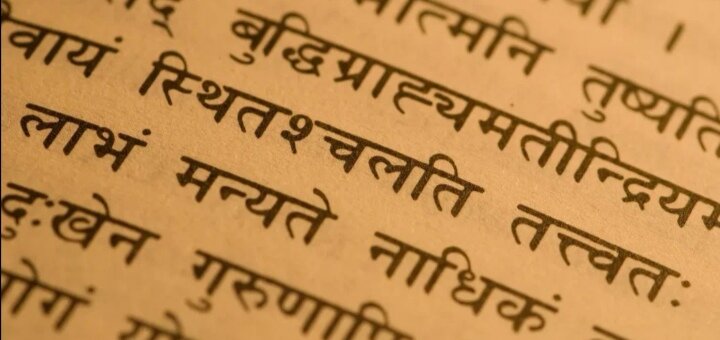 त्मनि तुष्यति
बुद्धिग्राह्यमतीन्द्रियम
वायं स्थितश्चलति तत्त्वतः
लाभं मन्यते नाधिकं
दुःखेन गुरुणापि
योगं